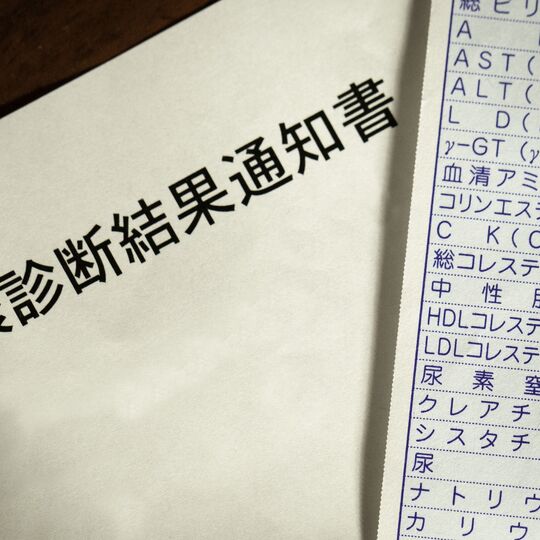 診断結果通知書
総ビリ
A
AST(
ALT(
L D(
γ-GT (γ
血清アミ
コリンエステ
C K(C
総コレステ
中性脂
HDLコレステ
LDLコレステ
尿素窒
クレアチ
シスタチ
尿
ナトリウ
カリウ